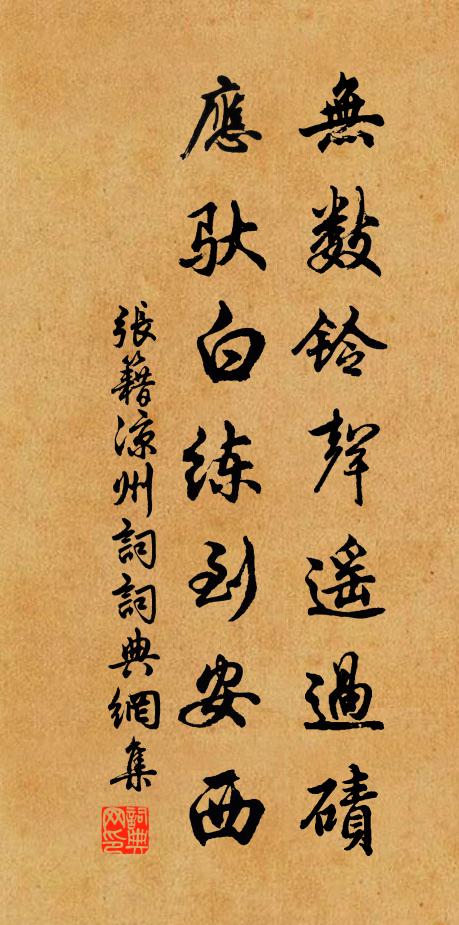 無數鈴聲遥過磧
應馱白練到安西
張籍涼州詞詞典網集
詞典网印